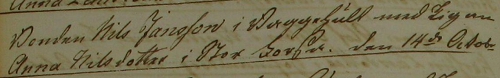 Bonden Nils Jansson i Baggehult med Pigan
Anna Nilsdotter i Stor den 14de Octob: